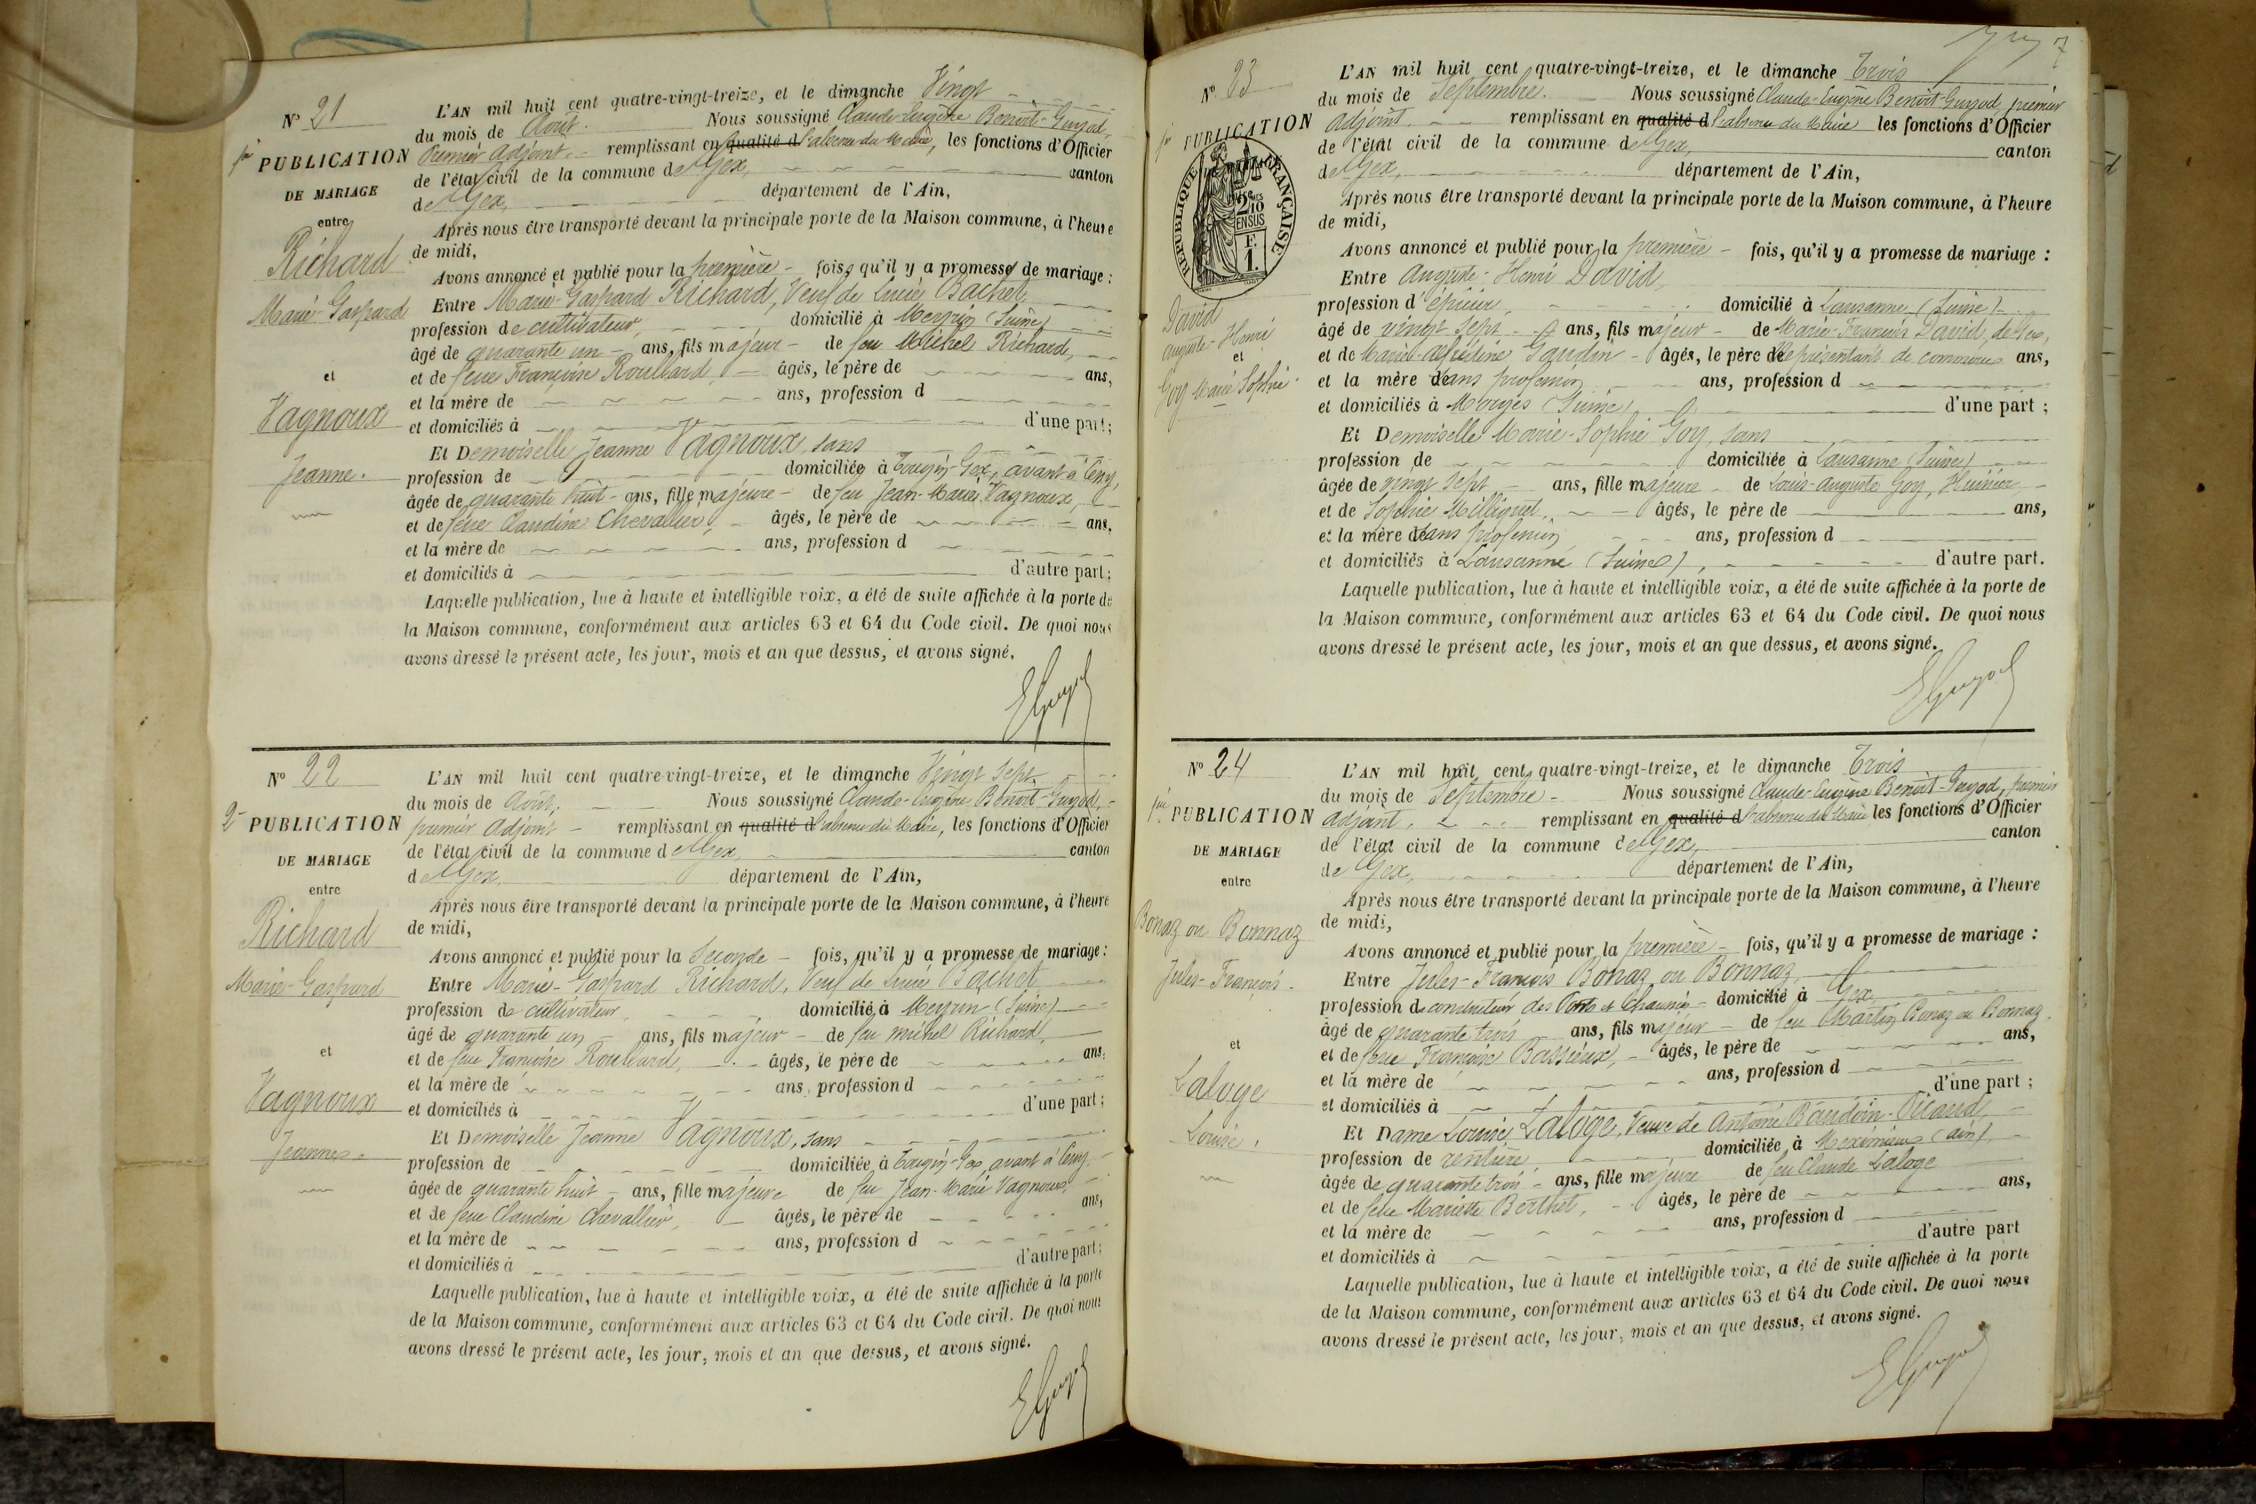 N° 21
1re PUBLICATION
DE MARIAGE
entre
Richard
Marie-Gaspard
et
Vagnoux
Jeanne.
L'AN mil huit cent quatre-vingt-treize, et le dimanche Vingt
du mois de Août. Nous soussigné Claude-Eugène Benoit-Guyod,
Premier Adjoint. remplissant en qualité d l'absence du Maire, les fonctions d'Officier
de l'état civil de la commune de Gex, canton
de Gex, département de l'Ain,
Après nous être transporté devant la principale porte de la Maison commune, à l'heure
de midi,
Avons annoncé et publié pour la première fois, qu'il y a promesse de mariage :
Entre Marie-Gaspard Richard, Veuf de Lucie Bachet
profession de cultivateur, domicilié à Meyrin (Suisse)
âgé de quarante un ans, fils majeur de feu Michel Richard,
et de feue Françoise Roullard, âgés, le père de ans,
et la mère de ans, profession d
et domiciliés à d'une part ;
Et Demoiselle Jeanne Vagnoux, sans
profession de domiciliée à Tougin-Gex, avant à Cessy,
âgée de quarante huit ans, fille majeure de feu Jean-Marie Vagnoux,
et de feue Claudine Chevallier, âgés, le père de ans,
et la mère de ans, profession d
et domiciliés à d'autre part ;
Laquelle publication, lue à haute et intelligible voix, a été de suite affichée à la porte de
la Maison commune, conformément aux articles 63 et 64 du Code civil. De quoi nous
avons dressé le présent acte, les jour, mois et an que dessus, et avons signé.
EGuyod
N° 22
2e PUBLICATION
DE MARIAGE
entre
Richard
Marie-Gaspard
et
Vagnoux
Jeanne.
L'AN mil huit cent quatre-vingt-treize, et le dimanche Vingt sept.
du mois de Août. Nous soussigné Claude-Eugène Benoit-Guyod,
premier Adjoint remplissant en qualité d l'absence du Maire, les fonctions d'Officier
de l'état civil de la commune de Gex, canton
de Gex, département de l'Ain,
Après nous être transporté devant la principale porte de la Maison commune, à l'heure
de midi,
Avons annoncé et publié pour la Seconde fois, qu'il y a promesse de mariage :
Entre Marie-Gaspard Richard, Veuf de Lucie Bachet
profession de cultivateur, domicilié à Meyrin (Suisse)
âgé de quarante un ans, fils majeur de feu Michel Richard,
et de feue Françoise Roullard, âgés, le père de ans,
et la mère de ans, profession d
et domiciliés à d'une part ;
Et Demoiselle Jeanne Vagnoux, sans
profession de domiciliée à Tougin-Gex, avant à Cessy
âgée de quarante huit ans, fille majeure de feu Jean-Marie Vagnoux,
et de feue Claudine Chevallier, âgés, le père de ans,
et la mère de ans, profession d
et domiciliés à d'autre part ;
Laquelle publication, lue à haute et intelligible voix, a été de suite affichée à la porte
de la Maison commune, conformément aux articles 63 et 64 du Code civil. De quoi nous
avons dressé le présent acte, les jour, mois et an que dessus, et avons signé.
EGuyod
7
N° 23
1re PUBLICATION
RÉPUBLIQUE FRANÇAISE
2/10 EN SUS
David
Auguste-Henri
et
Goy Marie Sophie
L'AN mil huit cent quatre-vingt-treize, et le dimanche Trois
du mois de Septembre. Nous soussigné Claude-Eugène Benoit-Guyod, premier
Adjoint. remplissant en qualité d l'absence du Maire les fonctions d'Officier
de l'état civil de la commune de Gex, canton
de Gex, département de l'Ain,
Après nous être transporté devant la principale porte de la Maison commune, à l'heure
de midi,
Avons annoncé et publié pour la première fois, qu'il y a promesse de mariage :
Entre Auguste-Henri David,
profession d'épicier, domicilié à Lausanne (Suisse)
âgé de vingt sept ans, fils majeur de Marie-François David, de Gex,
et de Marie-Alfrédine Gaudin âgés, le père de Représentant de commerce ans,
et la mère de sans profession ans, profession d
et domiciliés à Morges (Suisse) d'une part ;
Et Demoiselle Marie-Sophie Goy, sans
profession de domiciliée à Lausanne (Suisse)
âgée de vingt sept ans, fille majeure de Louis-Auguste Goy, Huissier
et de Sophie Milliquet, âgés, le père de ans,
et la mère de sans profession ans, profession d
et domiciliés à Lausanne (Suisse), d'autre part.
Laquelle publication, lue à haute et intelligible voix, a été de suite affichée à la porte de
la Maison commune, conformément aux articles 63 et 64 du Code civil. De quoi nous
avons dressé le présent acte, les jour, mois et an que dessus, et avons signé.
EGuyod
N° 24
1re PUBLICATION
DE MARIAGE
entre
Bonaz ou Bonnaz
Jules-François
et
Laloge
Louise.
L'AN mil huit cent quatre-vingt-treize, et le dimanche Trois
du mois de Septembre Nous soussigné Claude-Eugène Benoit-Guyod, premier
Adjoint. remplissant en qualité d l'absence du Maire les fonctions d'Officier
de l'état civil de la commune de Gex, canton
de Gex, département de l'Ain,
Après nous être transporté devant la principale porte de la Maison commune, à l'heure
de midi,
Avons annoncé et publié pour la première fois, qu'il y a promesse de mariage :
Entre Jules-François Bonaz ou Bonnaz
profession de conducteur des Ponts et Chaussées domicilié à Gex
âgé de quarante trois ans, fils majeur de feu Martin Bonaz ou Bonnaz.
et de feue Françoise Bassieux, âgés, le père de ans,
et la mère de ans, profession d
et domiciliés à d'une part ;
Et Dame Louise Laloge, Veuve de Antoine Baudoin-Picaud,
profession de rentière domiciliée à Meximieux (Ain)
âgée de quarante trois ans, fille majeure de feu Claude Laloge
et de feue Mariette Berthet, âgés, le père de ans,
et la mère de ans, profession d
et domiciliés à d'autre part
Laquelle publication, lue à haute et intelligible voix, a été de suite affichée à la porte
de la Maison commune, conformément aux articles 63 et 64 du Code civil. De quoi nous
avons dressé le présent acte, les jour, mois et an que dessus, et avons signé.
EGuyod